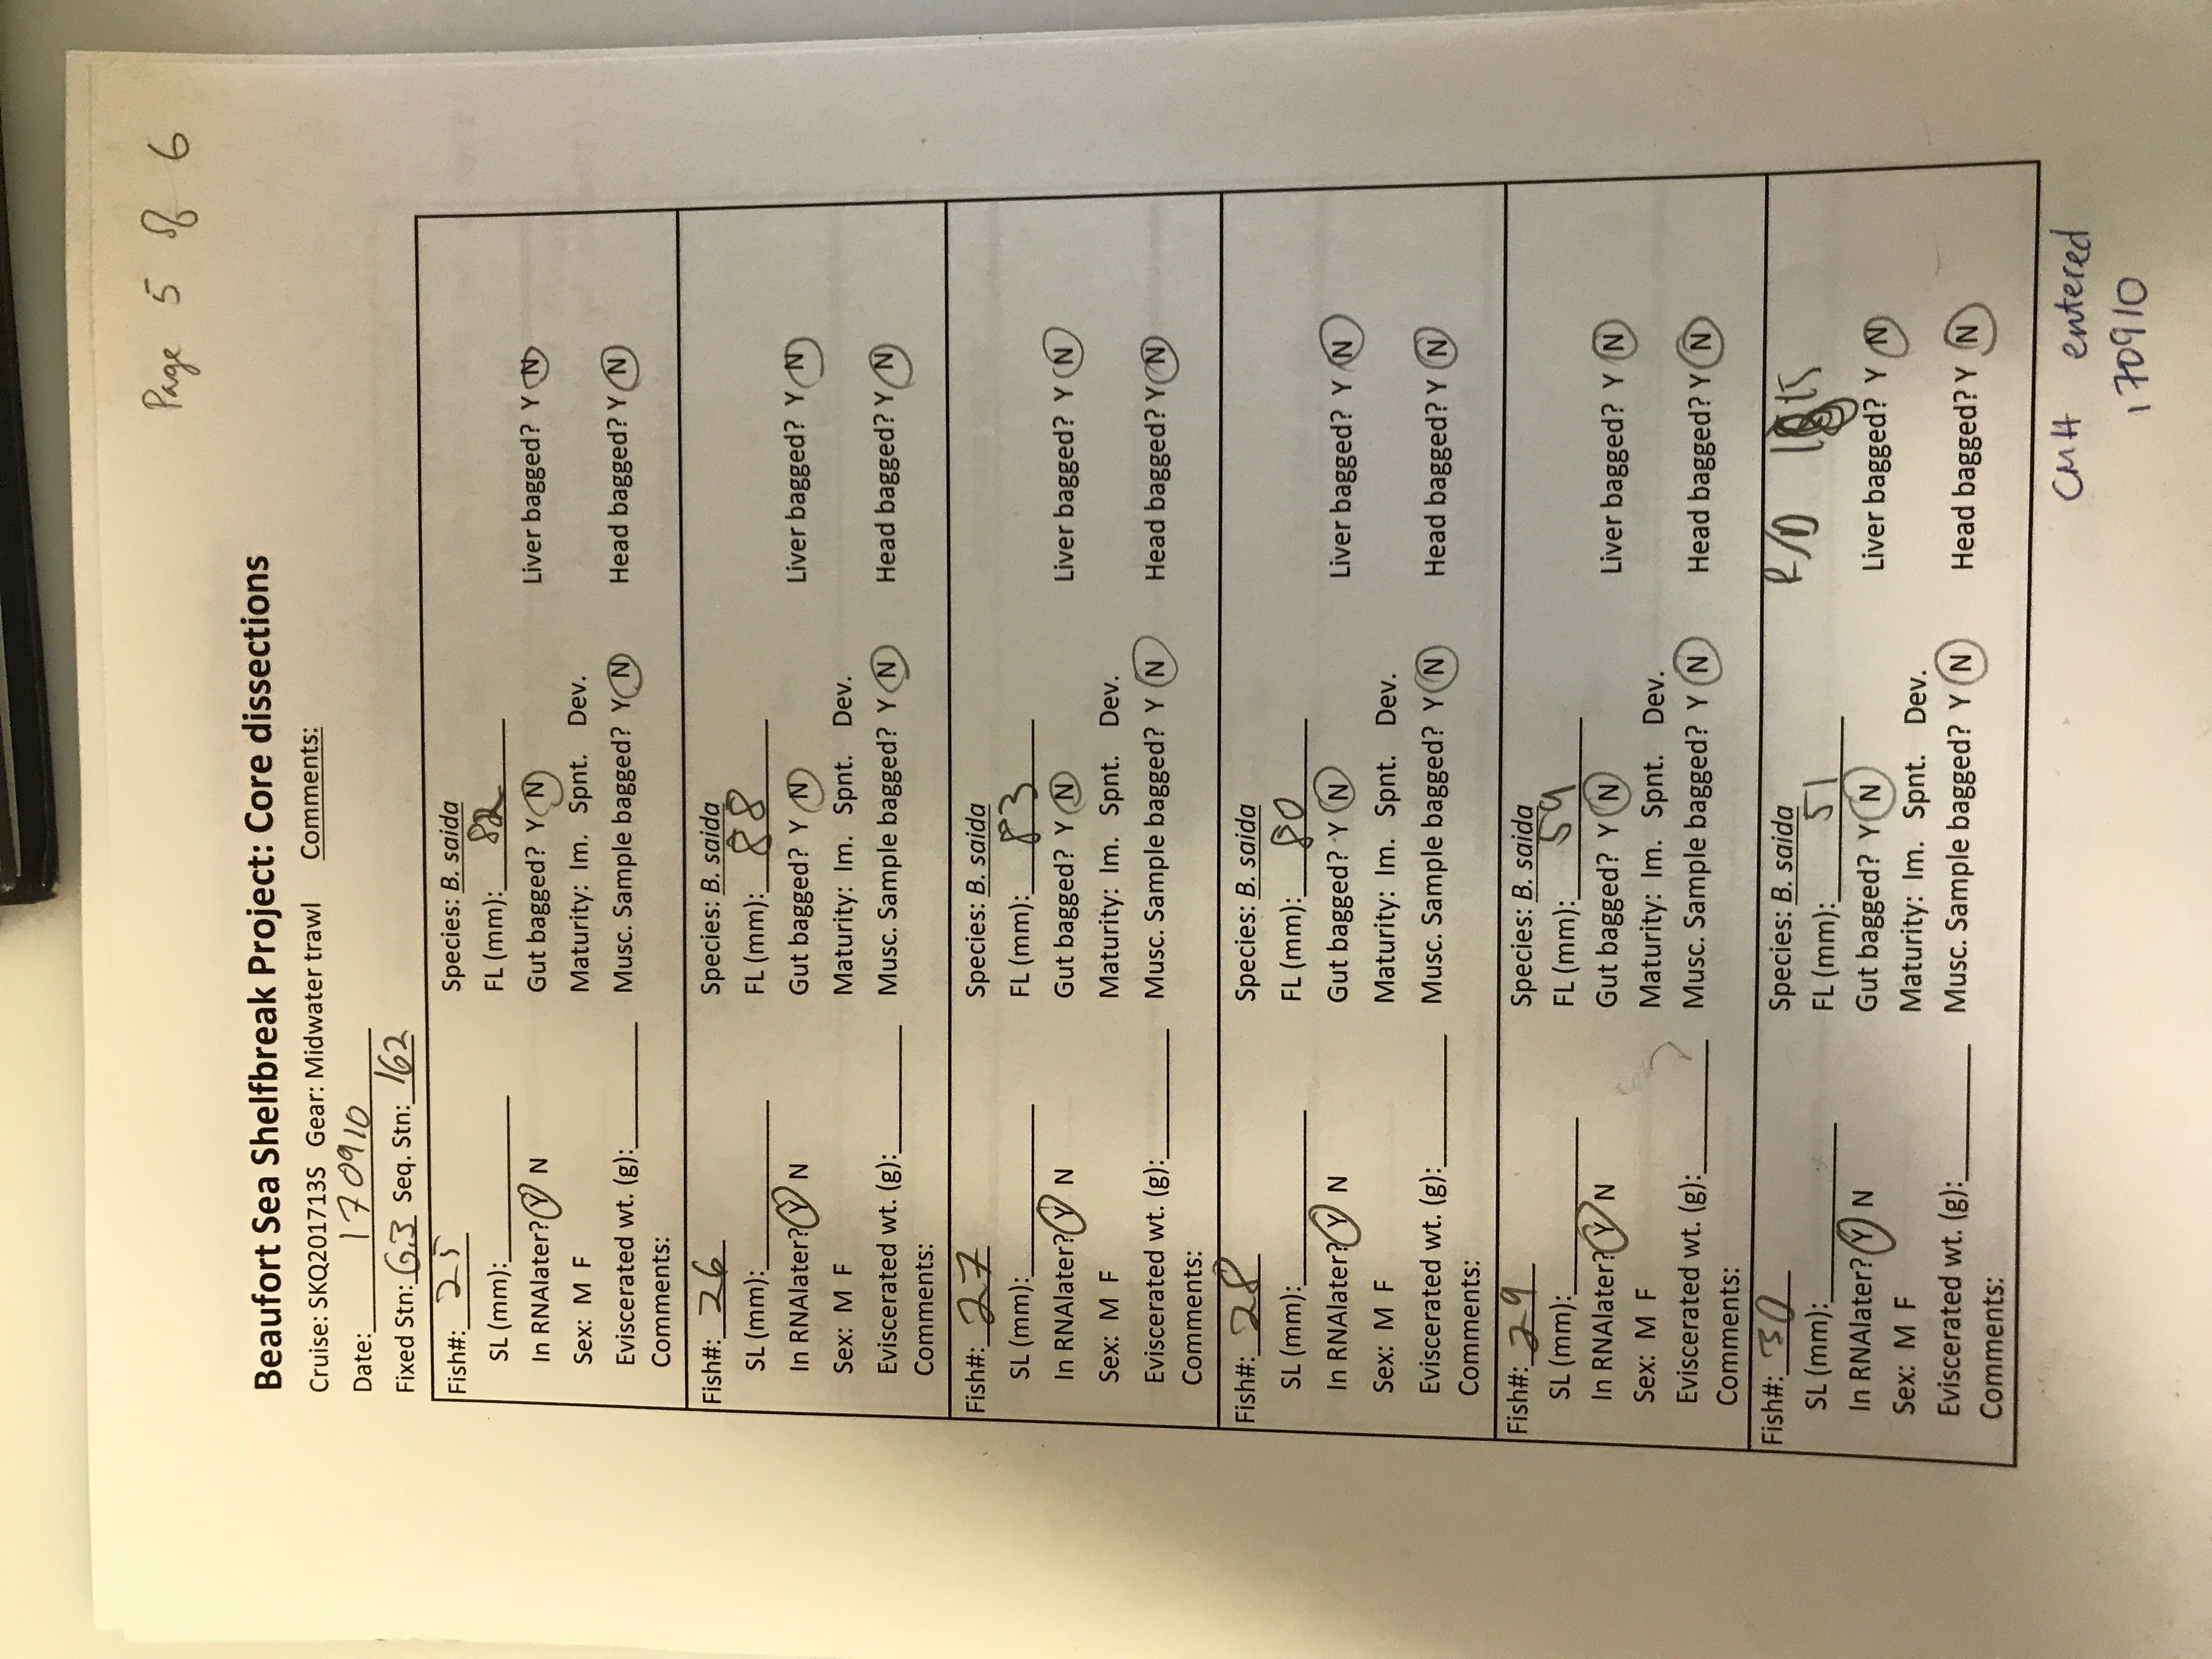 Page 5 of 6
Beaufort Sea Shelfbreak Project: Core dissections
Cruise: SKQ201713S Gear: Midwater trawl Comments:
Date: 170910
Fixed Stn: 6.3 Seq. Stn: 162
Fish#: 25 Species: B. saida
SL (mm): FL (mm): 82
In RNAlater? Y N Gut bagged? Y N Liver bagged? Y N
Sex: M F Maturity: Im. Spnt. Dev.
Eviscerated wt. (g): Musc. Sample bagged? Y N Head bagged? Y N
Comments:
Fish#: 26 Species: B. saida
SL (mm): FL (mm): 88
In RNAlater? Y N Gut bagged? Y N Liver bagged? Y N
Sex: M F Maturity: Im. Spnt. Dev.
Eviscerated wt. (g): Musc. Sample bagged? Y N Head bagged? Y N
Comments:
Fish#: 27 Species: B. saida
SL (mm): FL (mm): 83
In RNAlater? Y N Gut bagged? Y N Liver bagged? Y N
Sex: M F Maturity: Im. Spnt. Dev.
Eviscerated wt. (g): Musc. Sample bagged? Y N Head bagged? Y N
Comments:
Fish#: 28 Species: B. saida
SL (mm): FL (mm): 80
In RNAlater? Y N Gut bagged? Y N Liver bagged? Y N
Sex: M F Maturity: Im. Spnt. Dev.
Eviscerated wt. (g): Musc. Sample bagged? Y N Head bagged? Y N
Comments:
Fish#: 29 Species: B. saida
SL (mm): FL (mm): 59
In RNAlater? Y N Gut bagged? Y N Liver bagged? Y N
Sex: M F Maturity: Im. Spnt. Dev.
Eviscerated wt. (g): Musc. Sample bagged? Y N Head bagged? Y N
Comments:
Fish#: 30 Species: B. saida
SL (mm): FL (mm): 51
In RNAlater? Y N Gut bagged? Y N Liver bagged? Y N
Sex: M F Maturity: Im. Spnt. Dev.
Eviscerated wt. (g): Musc. Sample bagged? Y N Head bagged? Y N
Comments:
CMH entered
170910